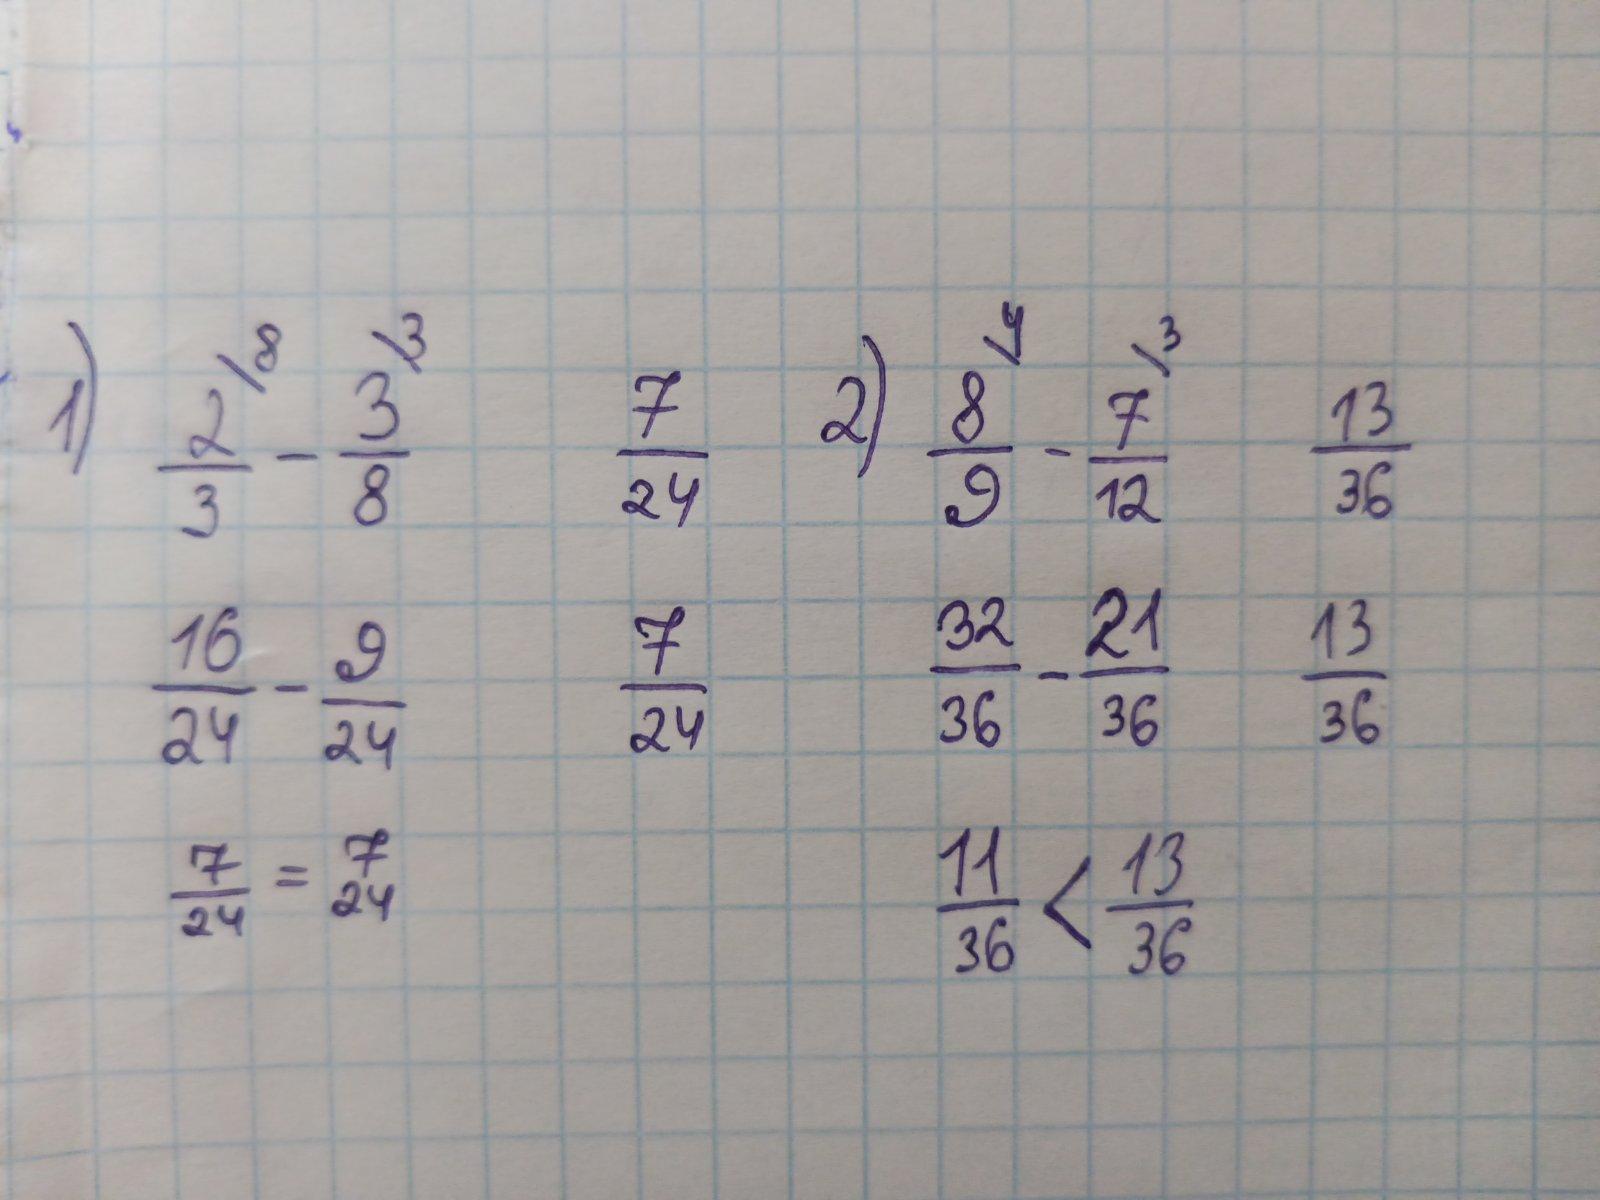 1) 2/3 \8 - 3/8 \3   7/24
16/24 - 9/24   7/24
7/24 = 7/24
2) 8/9 \4 - 7/12 \3   13/36
32/36 - 21/36   13/36
11/36 < 13/36